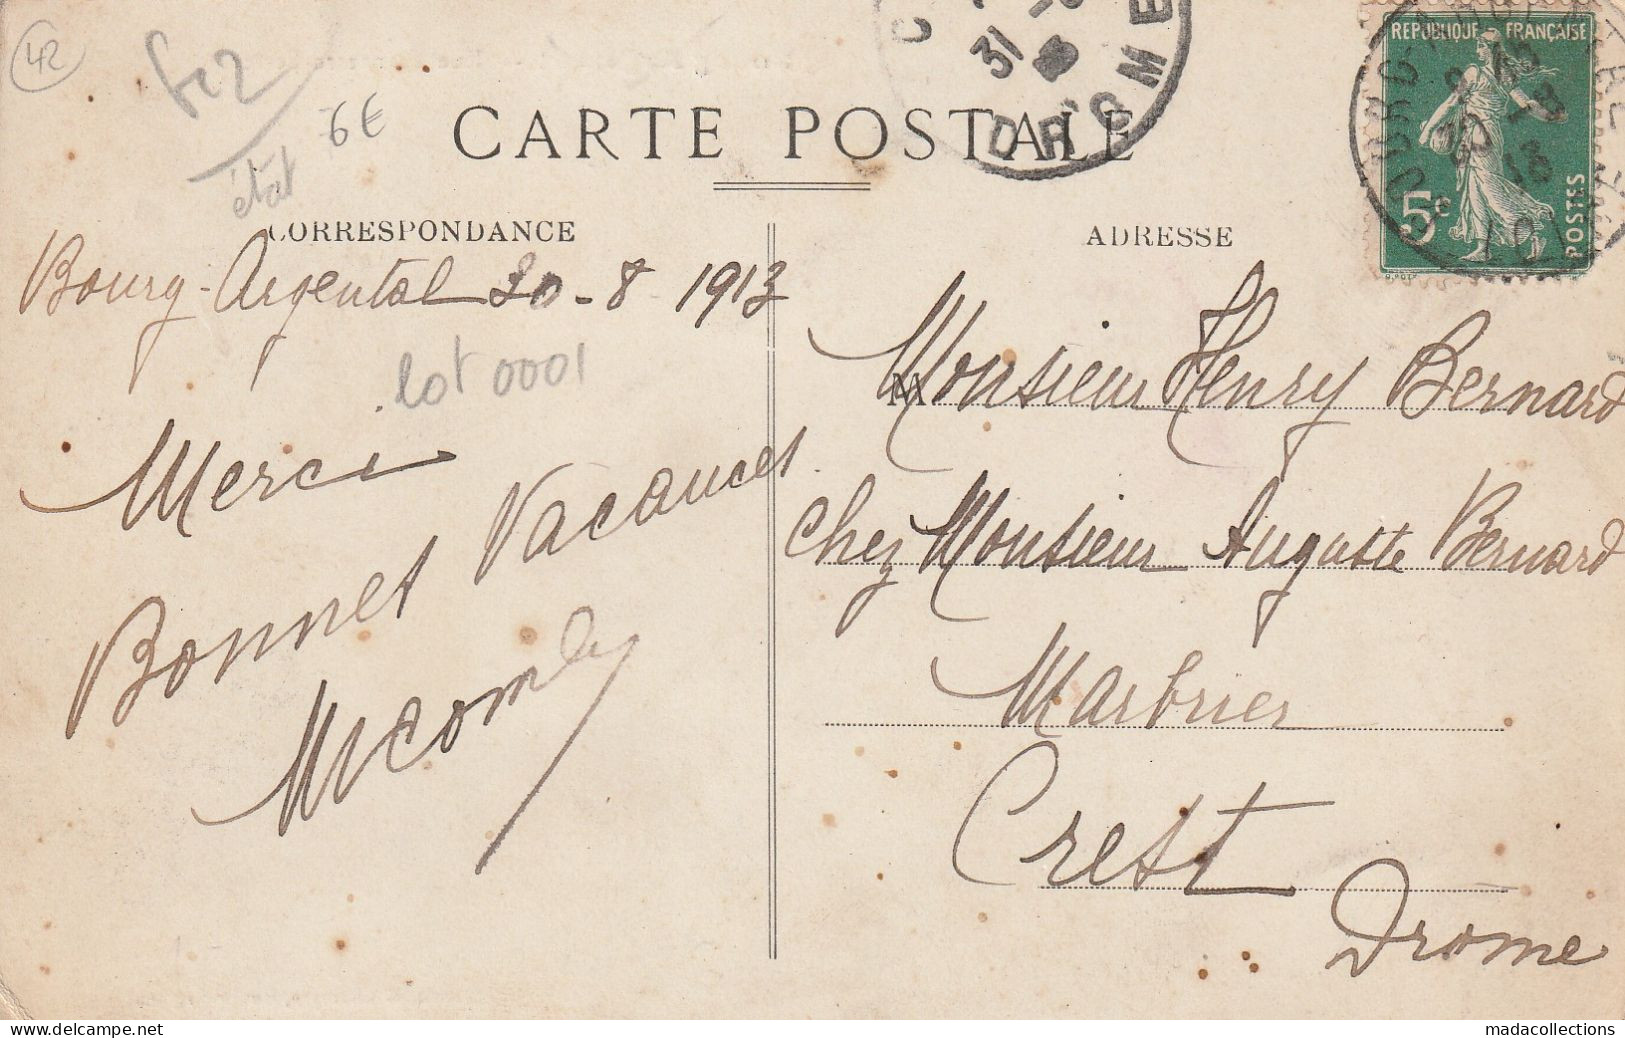 42
6€
état
CARTE POSTALE
CORRESPONDANCE
Bourg-Argental 30-8 1913
lot 0001
Merci
Bonnes Vacances
ADRESSE
M
Monsieur Henry Bernard
chez Monsieur Auguste Bernard
Marbrier
Crest
Drome
31
DROME
REPUBLIQUE FRANÇAISE
5c
POSTES
Delcampe.net
madacollections